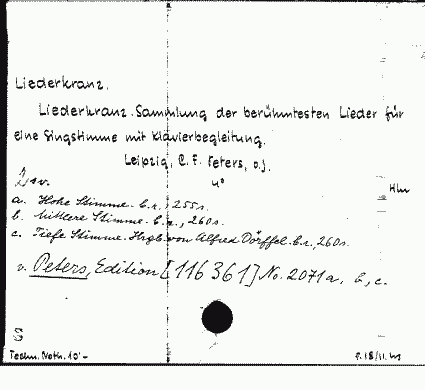 Liederkranz.
Liederkranz. Sammlung der berühmtesten Lieder für
eine Singstimme mit Klavierbegleitung.
Leipzig, C. F. Peters, o.J.
4°
a. Hohe Stimme. b.r., 255s.
b. Mittlere Stimme. b.r., 260s.
c. Tiefe Stimme. Hrgb. von Alfred Dörffel. b.r., 260s.
v. Peters, Edition [116 361] No. 2071a, b, c.
Techn. Noth. 10'-